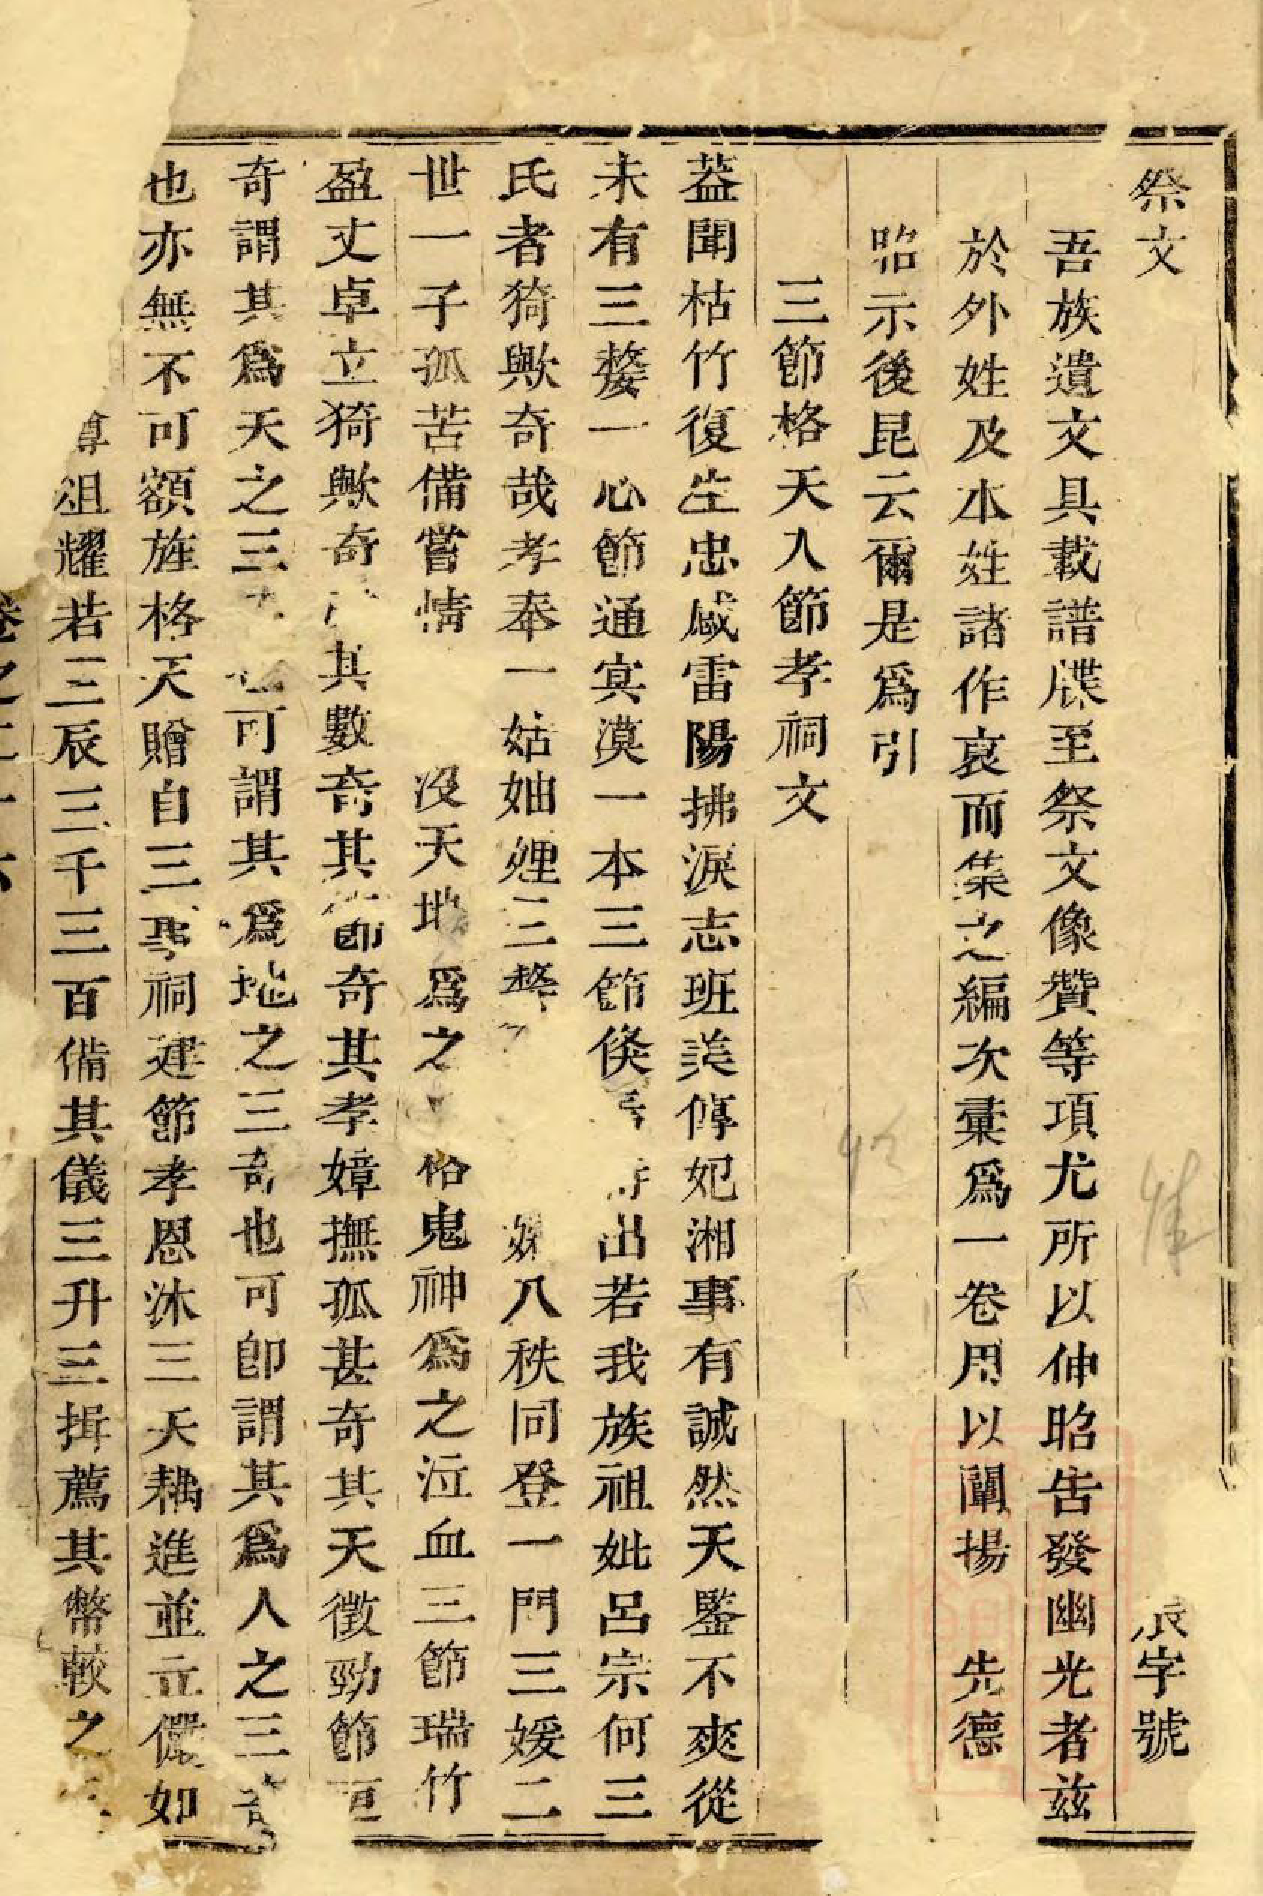 祭文 辰字號
吾族遺文具載譜牒至祭文像贊等項尤所以伸昭告發幽光者兹
於外姓及本姓諸作裒而集之編次彙爲一卷用以闡揚 先德
昭示後昆云爾是爲引
三節格天人節孝祠文
葢聞枯竹復生忠感雷陽拂淚志班美傳妃湘事有誠然天鑒不爽從
未有三嫠一心節通寞漠一本三節倏 出若我族祖妣呂宗何三
氏者猗歟奇哉孝奉一姑妯娌三嫠 八秩同登一門三媛二
世一子孤苦備嘗情 沒天地爲之 格鬼神爲之泣血三節瑞竹
盈丈卓立猗歟奇 其數奇其節奇其孝嫜撫孤甚奇其天徵勁節
奇謂其爲天之三 可謂其爲地之三奇也可卽謂其爲人之三奇
也亦無不可額旌格天贈自三 祠建節孝恩沐三天耦進並立儼如
俎耀若三辰三千三百備其儀三升三揖薦其幣較之
卷之二十六